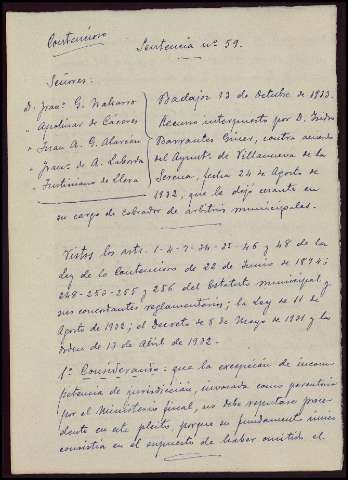 Contencioso
Sentencia nº 59.
Señores:
D. Franº G. Naharro
" Apolinar de Cáceres
" Juan A. G. Alarcón
" Franº de A. Laborda
" Justiniano de Llera
Badajoz 13 de Octubre de 1933.
Recurso interpuesto por D. Isidro
Barrantes Giner, contra acuerdo
del Ayuntº de Villanueva de la
Serena, fecha 24 de Agosto de
1932, que le dejó cesante en
su cargo de cobrador de arbitrios municipales.
Vistos los arts. 1-4-7-34- -46 y 48 de la
Ley de lo Contencioso de 22 de Junio de 1894;
248-253-255 y 256 del Estatuto municipal y
sus concordantes reglamentarios; la Ley de 11 de
Agosto de 1932; el Decreto de 8 de Mayo de 1931 y la
orden de 13 de Abril de 1932.
1º Considerando: que la excepción de incom-
petencia de jurisdicción, invocada como perentoria
por el Ministerio fiscal, no debe reputarse proce-
dente en este pleito, porque su fundamento único
consistía en el supuesto de haber omitido el